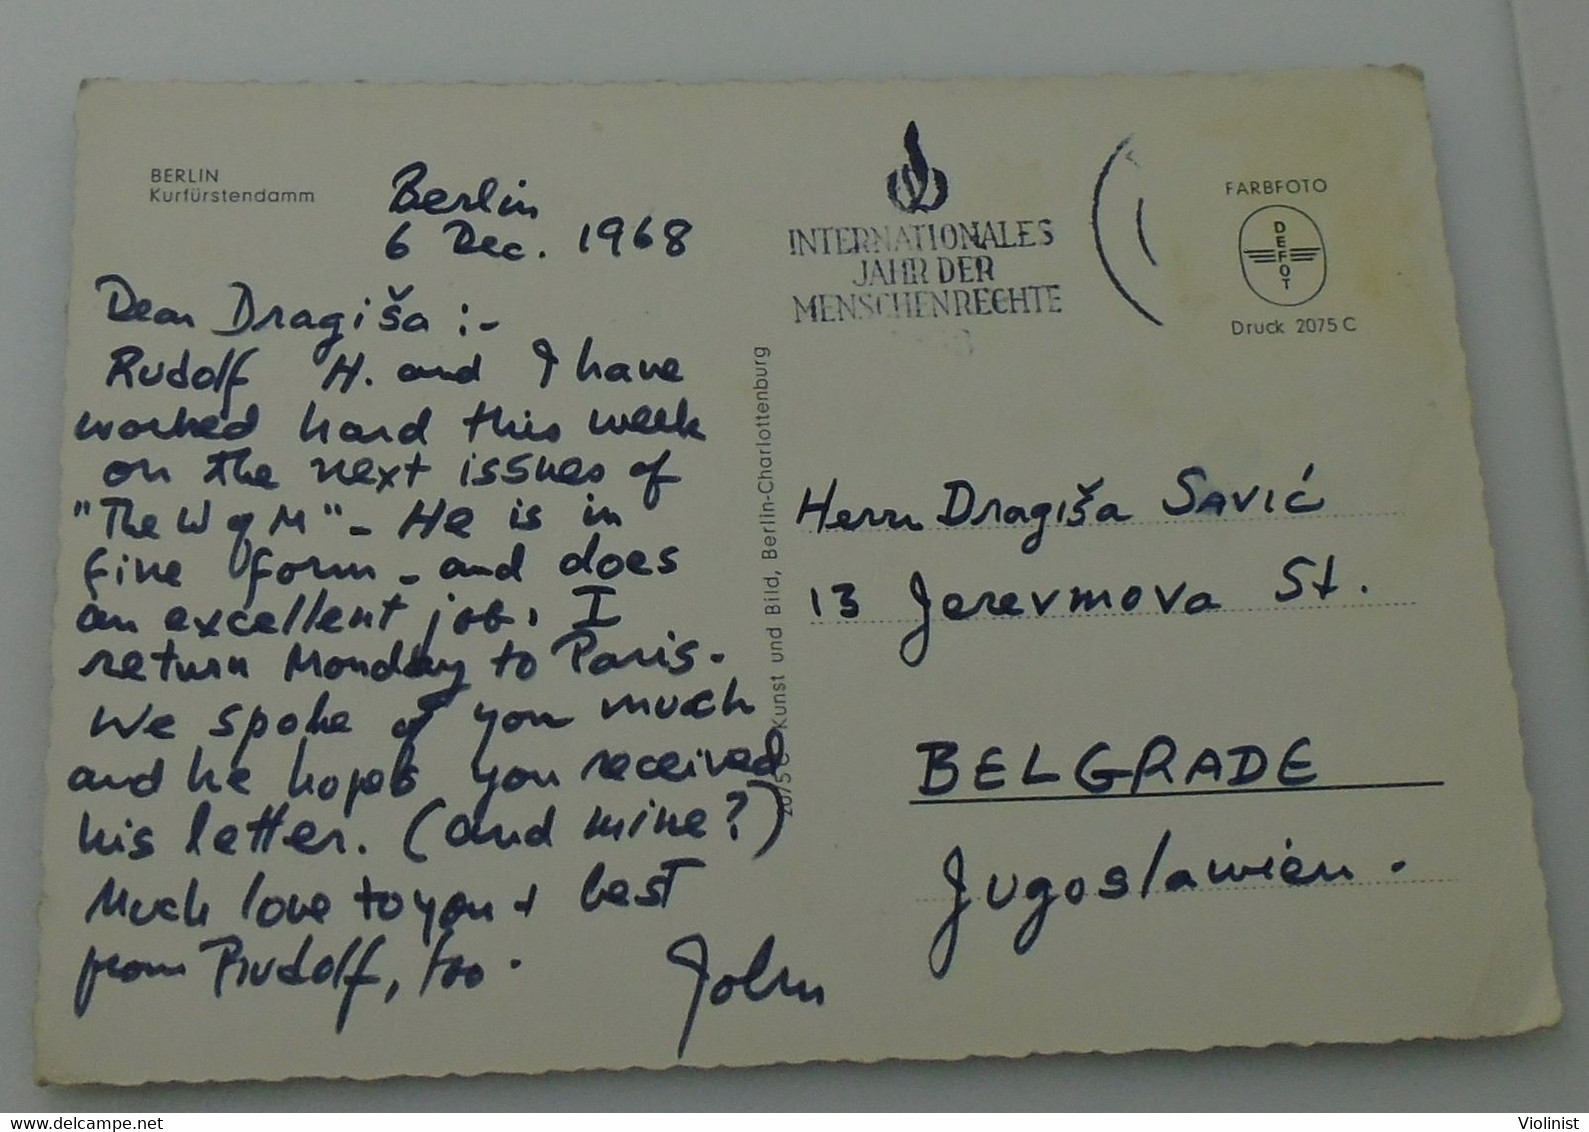 BERLIN
Kurfürstendamm
Berlin
6 Dec. 1968
Dear Dragiša :-
Rudolf H. and I have
worked hard this week
on the next issues of
"The W of M" - He is in
fine form - and does
an excellent job. I
return Monday to Paris.
We spoke of you much
and he hopes you received
his letter. (and mine?)
Much love to you + best
from Rudolf, too.
John
2075 C Kunst und Bild, Berlin-Charlottenburg
INTERNATIONALES
JAHR DER
MENSCHENRECHTE
FARBFOTO
DEFOT
Druck 2075 C
Herrn Dragiša SAVIĆ
13 Jerevmova St.
BELGRADE
Jugoslawien.
www.delcampe.net
Violinist